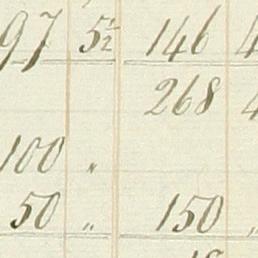 97 5½ 146 4
268 4
100 "
50 " 150 "